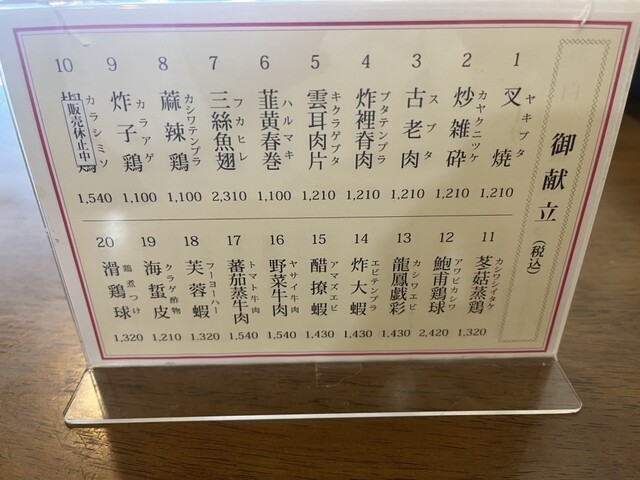 御献立（税込）
1 叉焼 ヤキブタ 1,210
2 炒雑砕 カヤクニツケ 1,210
3 古老肉 スブタ 1,210
4 炸裡脊肉 ブタテンプラ 1,210
5 雲耳肉片 キクラゲブタ 1,210
6 韮黄春巻 ハルマキ 1,100
7 三絲魚翅 フカヒレ 2,310
8 蔴辣鶏 カシワテンプラ 1,100
9 炸子鶏 カラアゲ 1,100
10 鶏 カラシミソ 販売休止中 1,540
11 芝菇蒸鶏 カシワシイタケ 1,320
12 鮑甫鶏球 アワビカシワ 2,420
13 龍鳳戯彩 カシワエビ 1,210
14 炸大蝦 エビテンプラ 1,430
15 醋撩蝦 アマズエビ 1,430
16 野菜牛肉 ヤサイ牛肉 1,540
17 蕃茄蒸牛肉 トマト牛肉 1,540
18 芙蓉蝦 フーヨーハー 1,320
19 海蜇皮 クラゲ酢物 1,210
20 滑鶏球 鶏煮つけ 1,320